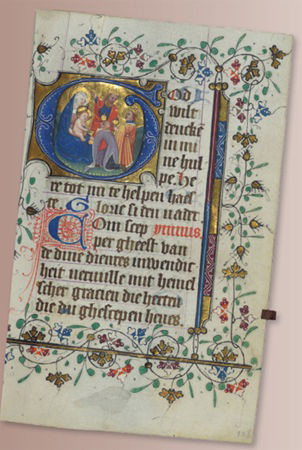 God
wilt
dencke
in mi
ne hul
pe. He
re tot mi te helpen haes
te. Glorie si den vader
Com scep ymnus.
per gheest van
de dine dienres inwendic
heit vervulle mit hemel
scher gracien die herten
die du ghescepen heves.